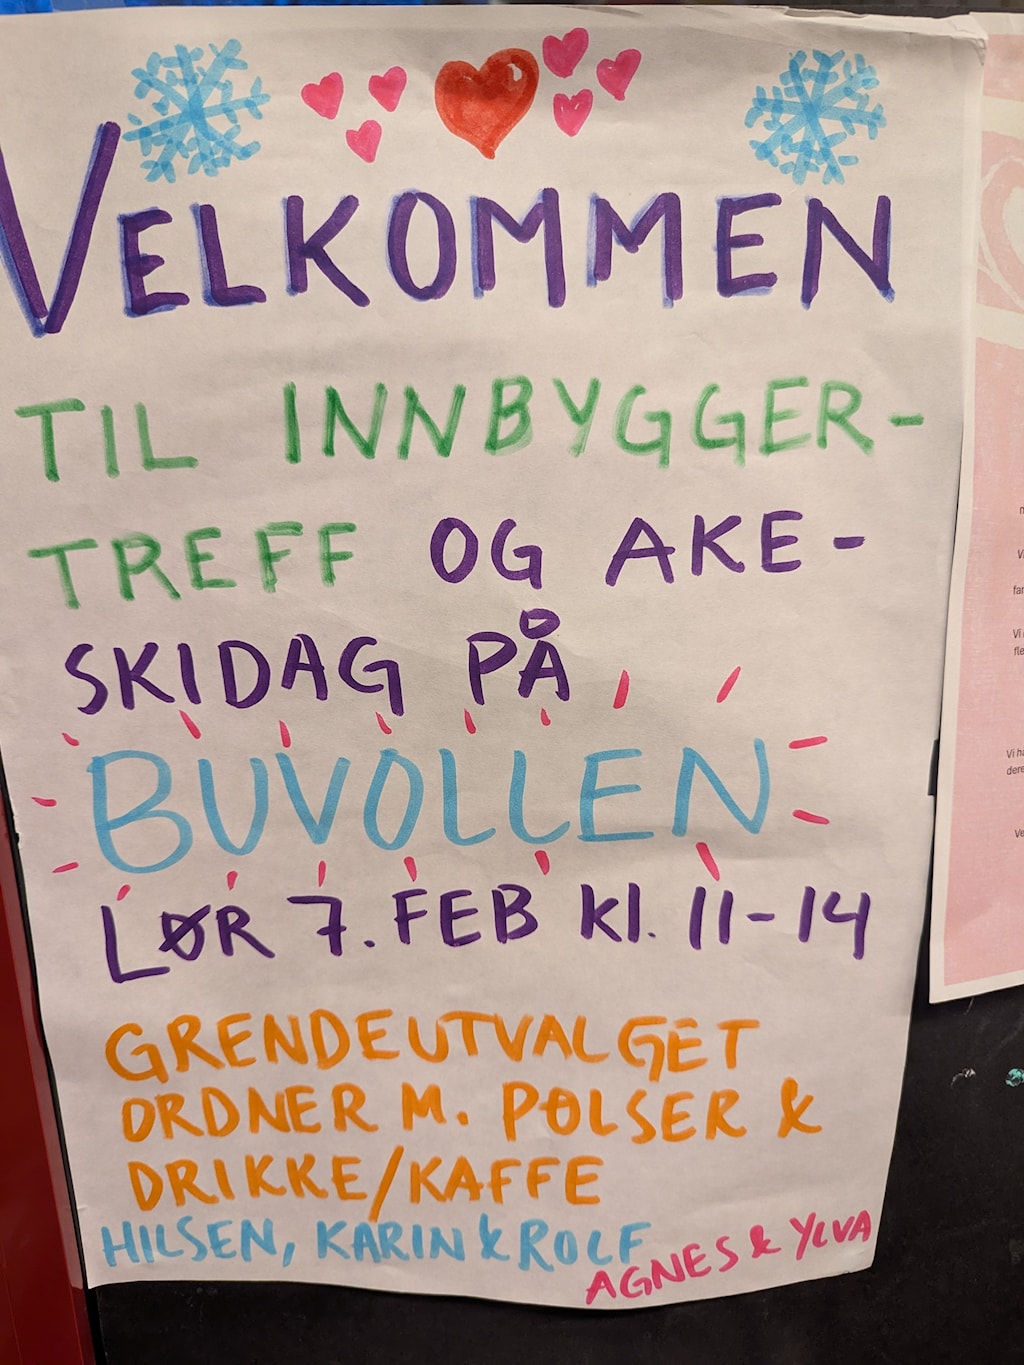 VELKOMMEN
TIL INNBYGGER-
TREFF OG AKE-
SKIDAG PÅ
BUVOLLEN
LØR 7. FEB Kl. 11-14
GRENDEUTVALGET
ORDNER M. PØLSER &
DRIKKE/KAFFE
HILSEN, KARIN & ROLF
AGNES & YLVA
Vi ha
dere